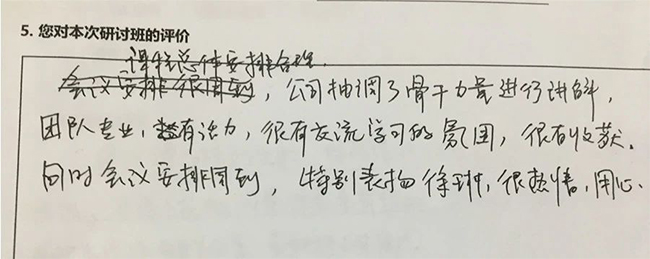 5. 您对本次研讨班的评价
课程总体安排合理
会议安排很周到，公司抽调了骨干力量进行讲解，
团队专业，有活力，很有交流学习的氛围，很有收获。
同时会议安排周到，特别表扬徐琳，很热情，用心。